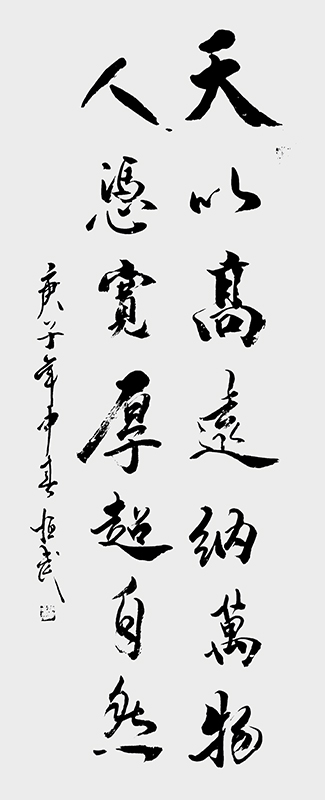 天以高遠納萬物
人憑寬厚超自然
庚子年中春 恒武